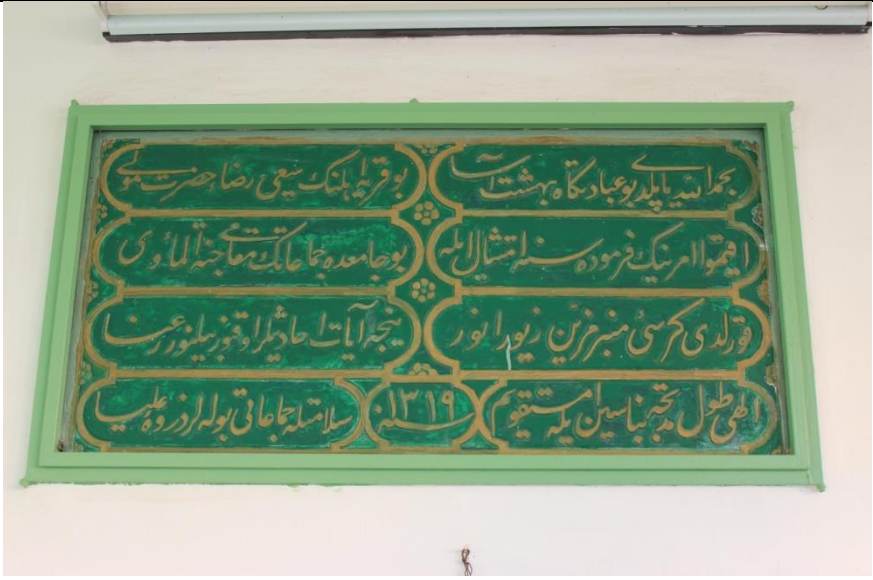 بحمد الله یاپلدی بو عبادتکاه بهشت آسا
بو قریه اهلنك سعی رضا حضرت مولی
اقیموا امرینك فرموده سنه امتثال ایله
بو جامعده جماعاتك مقامی جنة المأوی
قورلدی کرسئ منبر مزین زیور انور
نیجه آیات احادیثلر اوقنور بیلنور رعنا
الهی طول مدتجه بناسین ایله مستقویم
سنه ١٣١٩
سلامتله جماعاتی بوله لر ذروهٔ علیا